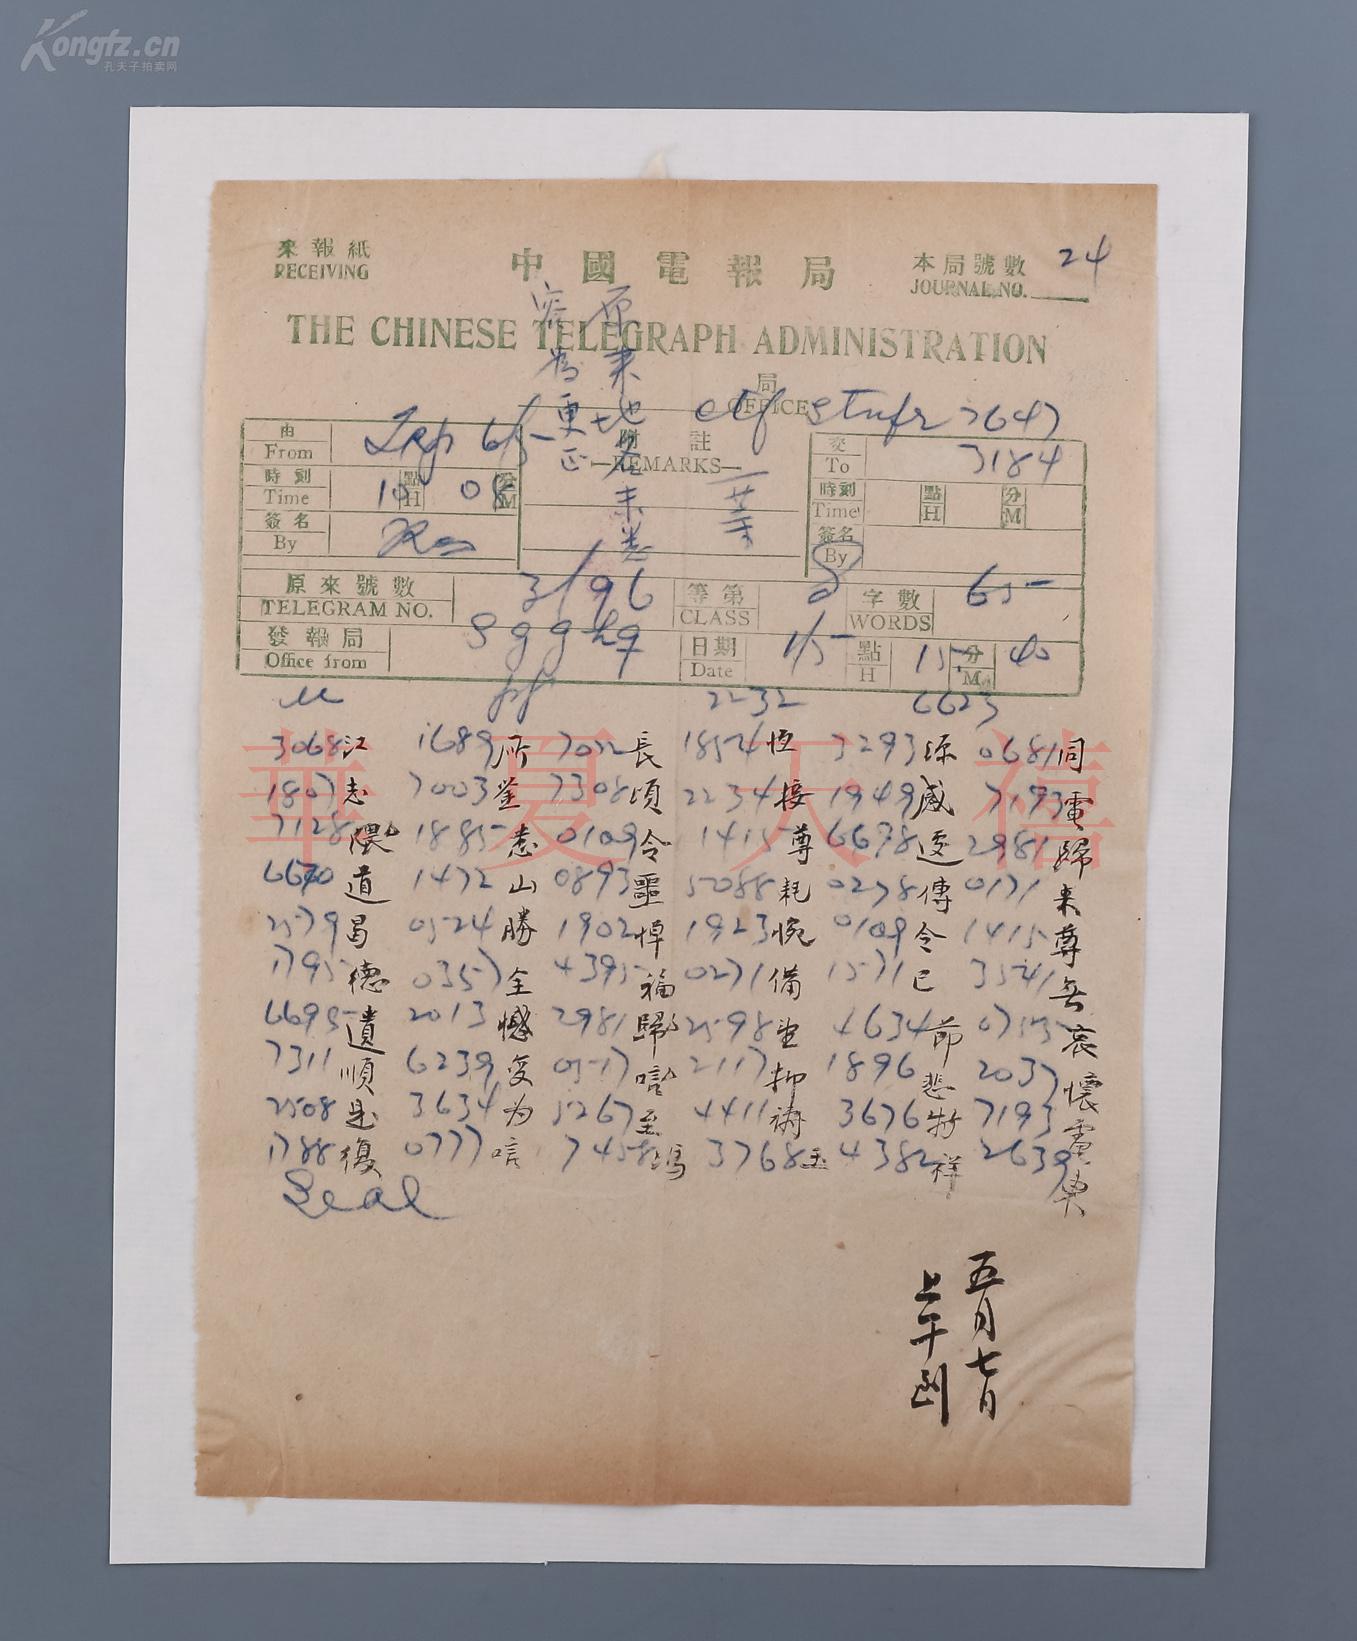 Kongfz.cn
孔夫子拍卖网
來報紙
RECEIVING
中國電報局
本局號數 24
JOURNAL NO.
THE CHINESE TELEGRAPH ADMINISTRATION
局
OFFICE
7643
由
From
附註
REMARKS
交
To
3184
時刻
Time
10
點
H
分
M
時刻
Time
點
H
分
M
簽名
By
簽名
By
原來
更正
原來號數
TELEGRAM NO.
3/96
等第
CLASS
字數
WORDS
65
發報局
Office from
日期
Date
1/5
點
H
15
分
M.
40
2232 6623
華夏天禧
3068江 1689所 7022長 1852恆 3293源 0681同
1807志 7003釜 7308頃 2234接 1949感 7193電
7128隈 1885悉 0109令 1415尊 6678逡 2981歸
6670道 1472山 0893噩 5088耗 0278傳 0171來
2579昌 0524勝 1902悼 1923惋 0109令 1415尊
1795德 0357全 4395福 0271備 1571已
6695遺 2013憾 2981歸 2598 4634節 0755哀
7311順 6239 0517 2117抑 1896悲 2037懷
2508是 3634为 5267至 4411 3676特 7193電
1788復 0777唁 7458鴻 3768玉 4382祥 2639
Seal
五月七日
上午到